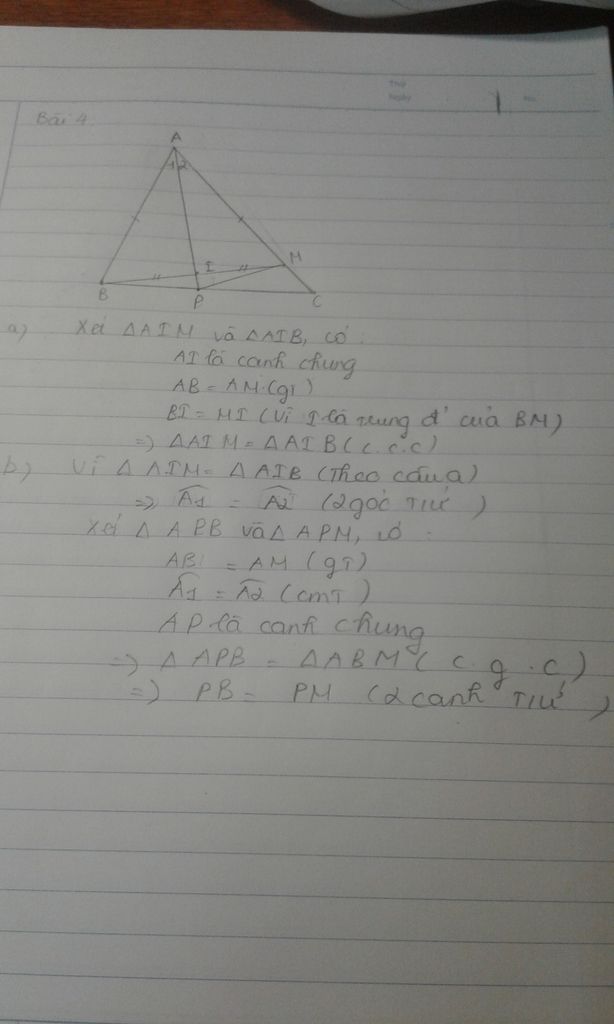 Thứ
Ngày
No.
Bài 4
A
1 2
I
M
B
P
C
a) Xét ΔAIM và ΔAIB, có :
AI là cạnh chung
AB = AM (gT)
BI = MI (Vì I là trung đ' của BM)
=> ΔAIM = ΔAIB (c.c.c)
b) Vì ΔAIM = ΔAIB (Theo câu a)
=> Â1 = Â2 (2 góc TIứ)
Xét ΔAPB và ΔAPM, có :
AB = AM (gT)
Â1 = Â2 (cmT)
AP là cạnh chung
=> ΔAPB = ΔABM (c.g.c)
=> PB = PM (2 cạnh TIứ)